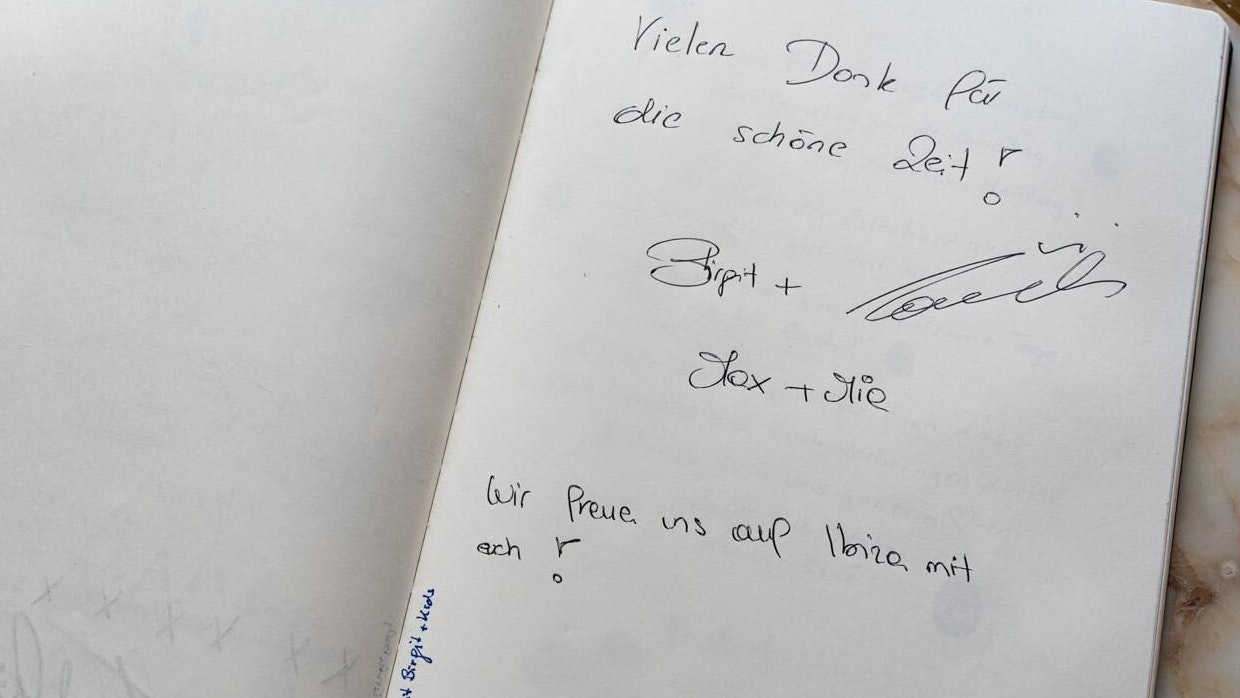 Vielen Dank für
die schöne Zeit!
Birgit +
Max + Mie
Wir freuen uns auf Ibiza mit
euch!
Birgit + Kids